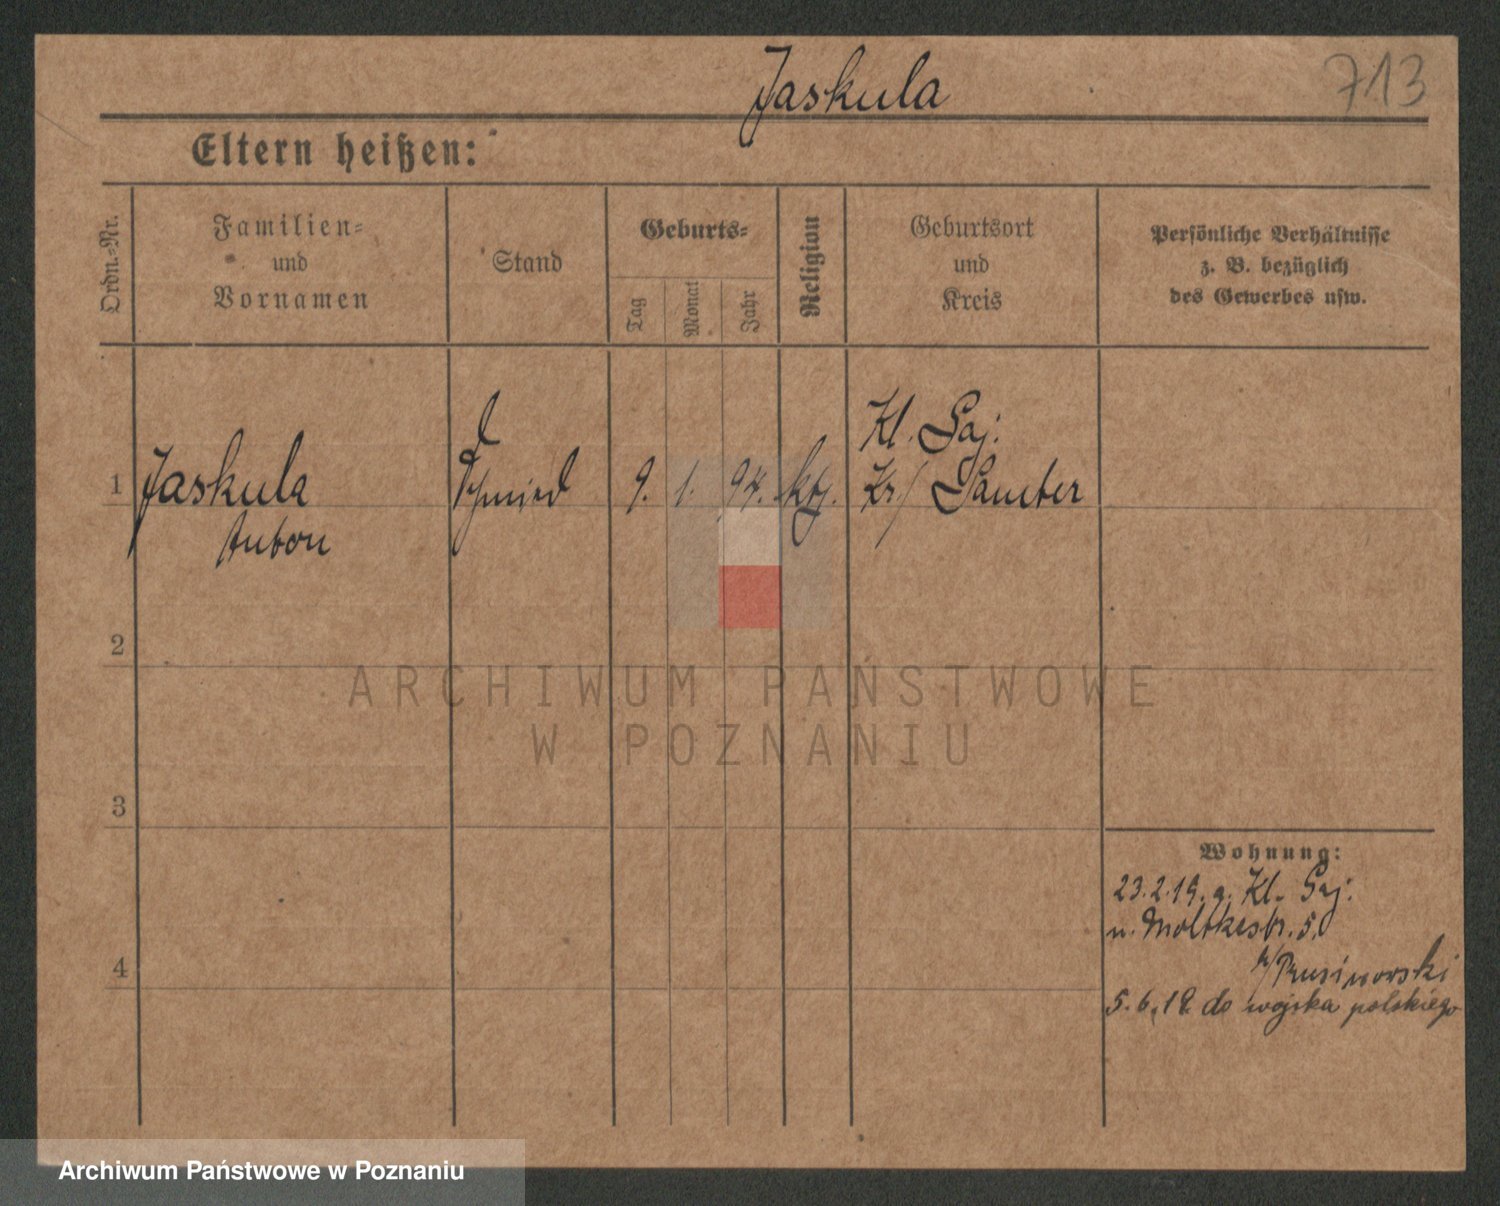 Jaskula
713
Eltern heißen:
Ordn.-Nr.
Familien-
und
Vornamen
Stand
Geburts-
Tag
Monat
Jahr
Religion
Geburtsort
und
Kreis
Persönliche Verhältnisse
z. B. bezüglich
des Gewerbes usw.
1
Jaskula
Anton
Schmied
9. 1. 94. kth.
Kl. Gaj.
Kr. Samter
2
ARCHIWUM PAŃSTWOWE
W POZNANIU
3
Wohnung:
23.2.19. Kl. Gaj.
n. Moltkestr. 5.
b/ Rusinowski
4
5.6.19. do wojska polskiego
Archiwum Państwowe w Poznaniu